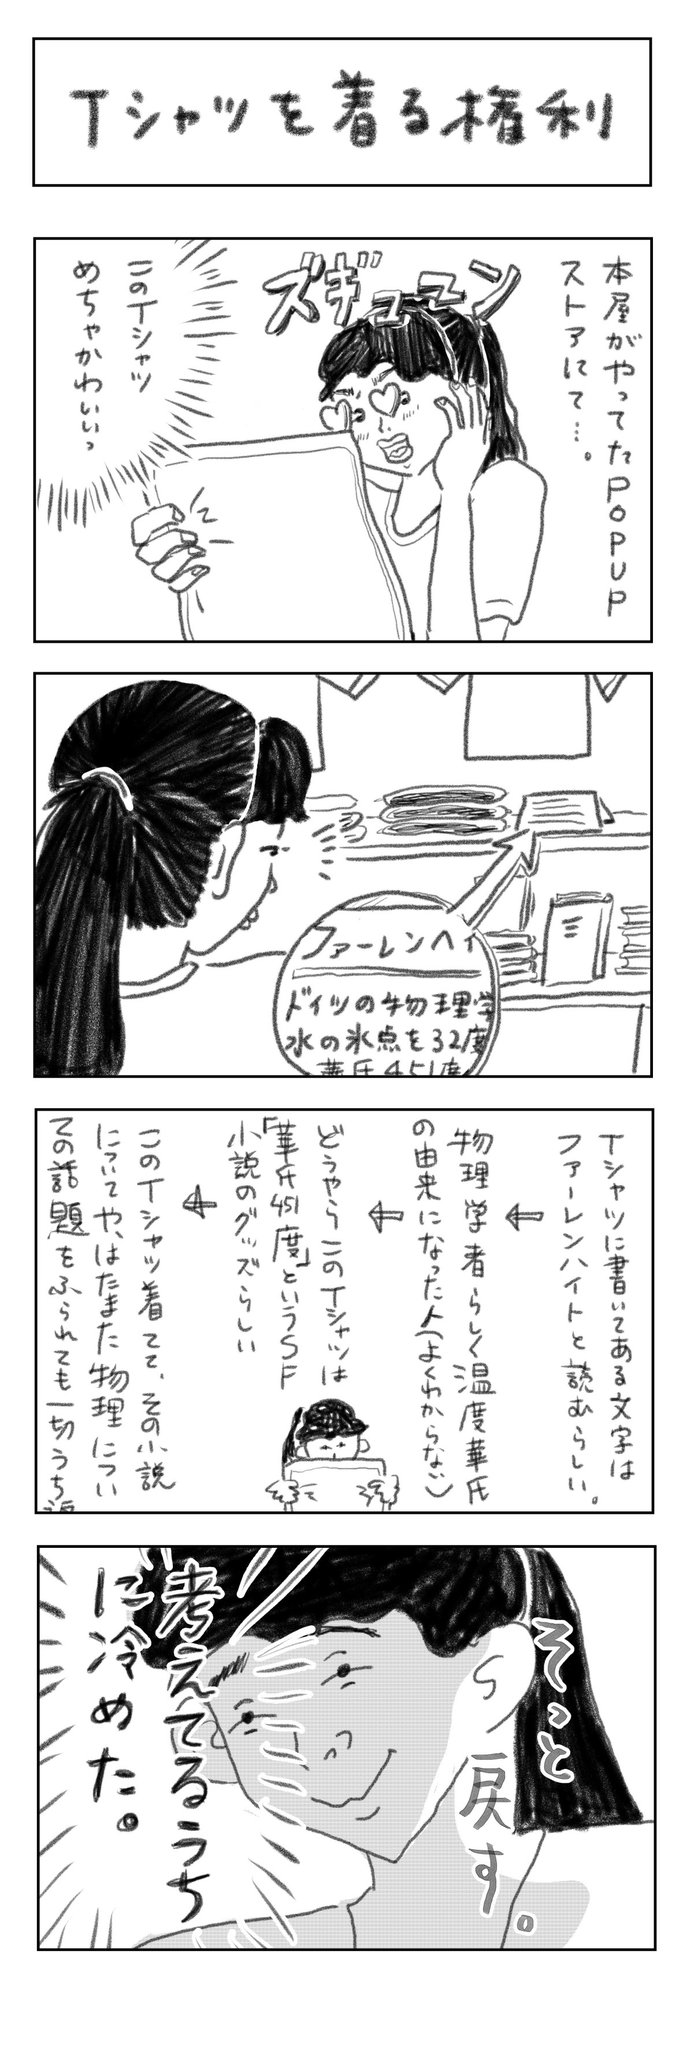 Tシャツを着る権利
本屋がやってたPOPUP
ストアにて…。
ズギューン
このTシャツ
めちゃかわいいっ
ファーレンヘイ
ドイツの物理学
水の氷点を32度
華氏451度
Tシャツに書いてある文字は
ファーレンハイトと読むらしい。
物理学者らしく温度華氏
の由来になった人(よくわからない)
どうやらこのTシャツは
「華氏451度」というSF
小説のグッズらしい
このTシャツ着てて、その小説
についてや、はたまた物理につい
ての話題をふられても一切うち返
そっと
戻す。
考えてるうち
に冷めた。